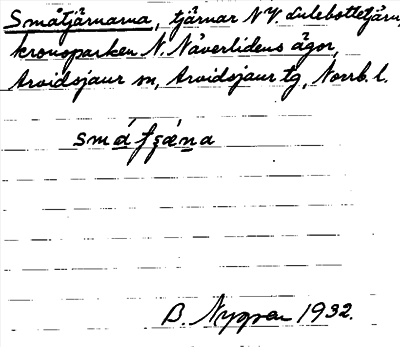 Småtjärnarna, tjärnar N.V. Lulebottetjärn,
kronoparken N. Näverlidens ägor,
Arvidsjaur sn, Arvidsjaur tg, Norrb. l.
småfsæna
B. Nygren 1932.